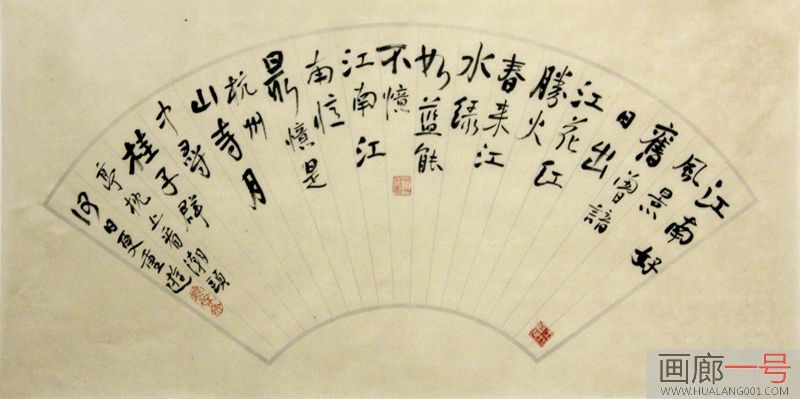 江南好
風景
舊曾諳
日出
江花紅
勝火
春来江
水緑
如藍能
不憶
江南江
南憶
最憶是
杭州
山寺月
中尋
桂子郡
亭枕上看潮頭
何日更重遊
画廊一号
WWW.HUALANG001.COM